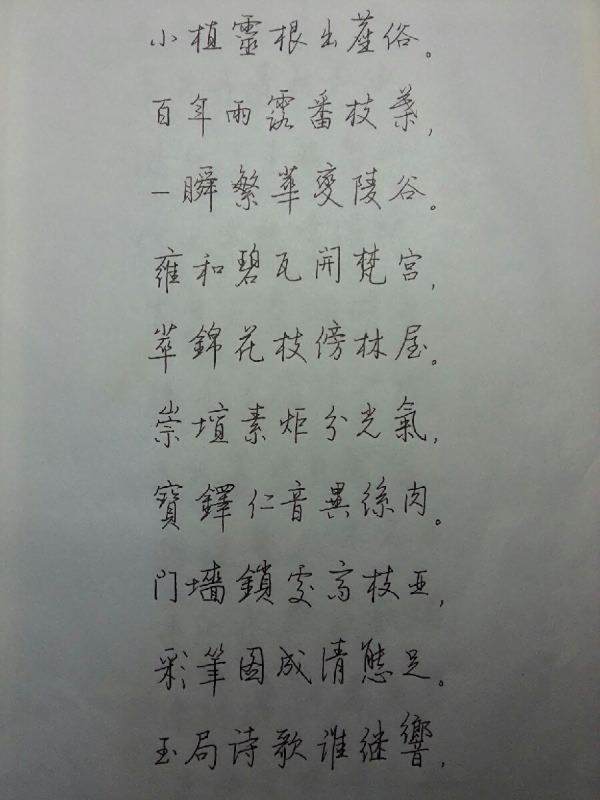 小植靈根出蓙俗。
百年雨露番枝葉,
一瞬繁華變陵谷。
雍和碧瓦開梵宮,
萃錦花枝傍林屋。
崇壇素炬分光氣,
寶鐸仁音異絲肉。
门墻鎖處高枝亚,
彩筆图成清態足。
玉局诗歌谁继響,